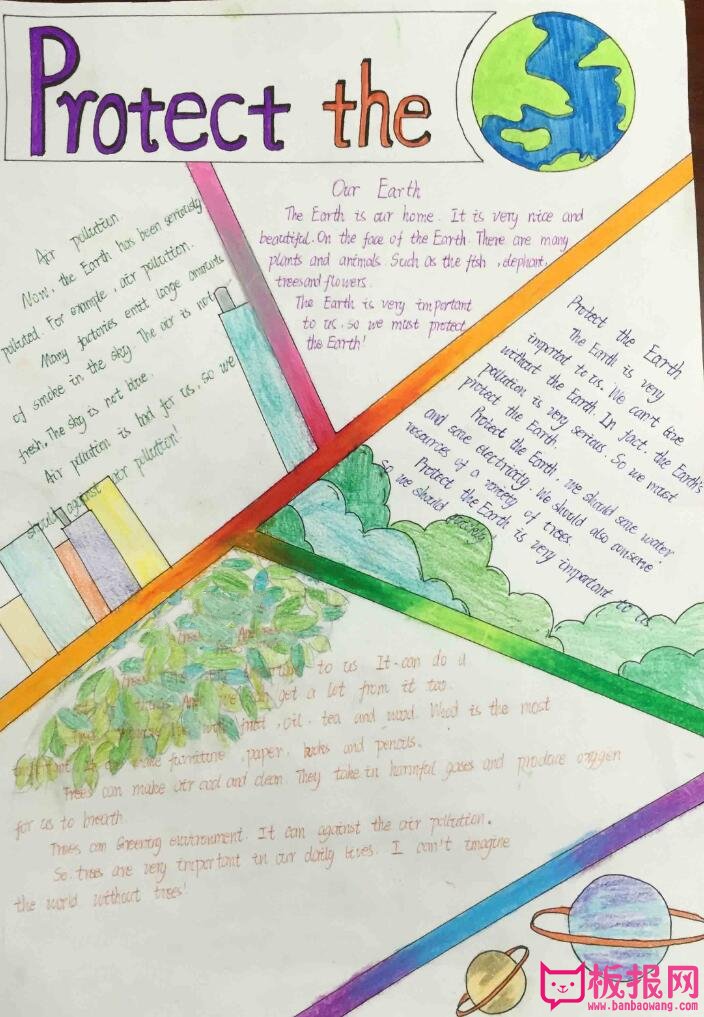 Protect the
Our Earth
The Earth is our home. It is very nice and
beautiful. On the face of the Earth. There are many
plants and animals. Such as the fish, elephant,
trees and flowers.
The Earth is very important
to us, so we must protect
the Earth!
Air pollution
Now, the Earth has been seriously
polluted. For example, air pollution.
Many factories emit large amounts
of smoke in the sky. The air is not
fresh. The sky is not blue.
Air pollution is bad for us, so we
should against air pollution!
Protect the Earth
The Earth is very
important to us. We can't live
without the Earth. In fact, the Earth's
pollution is very serious. So we must
protect the Earth.
Protect the Earth, we should save water
and save electricity. We should also conserve
resources of a variety of trees
Protect the Earth is very important to us
so we should
to us. It can do a
got a lot from it too.
oil, tea and wood. Wood is the most
furniture, paper, books and pencils.
Trees can make air cool and clean. They take in harmful gases and produce oxygen
for us to breath
Trees can Greening environment. It can against the air pollution.
So, trees are very important in our daily lives. I can't imagine
the world without trees!
板报网
www.banbaowang.com